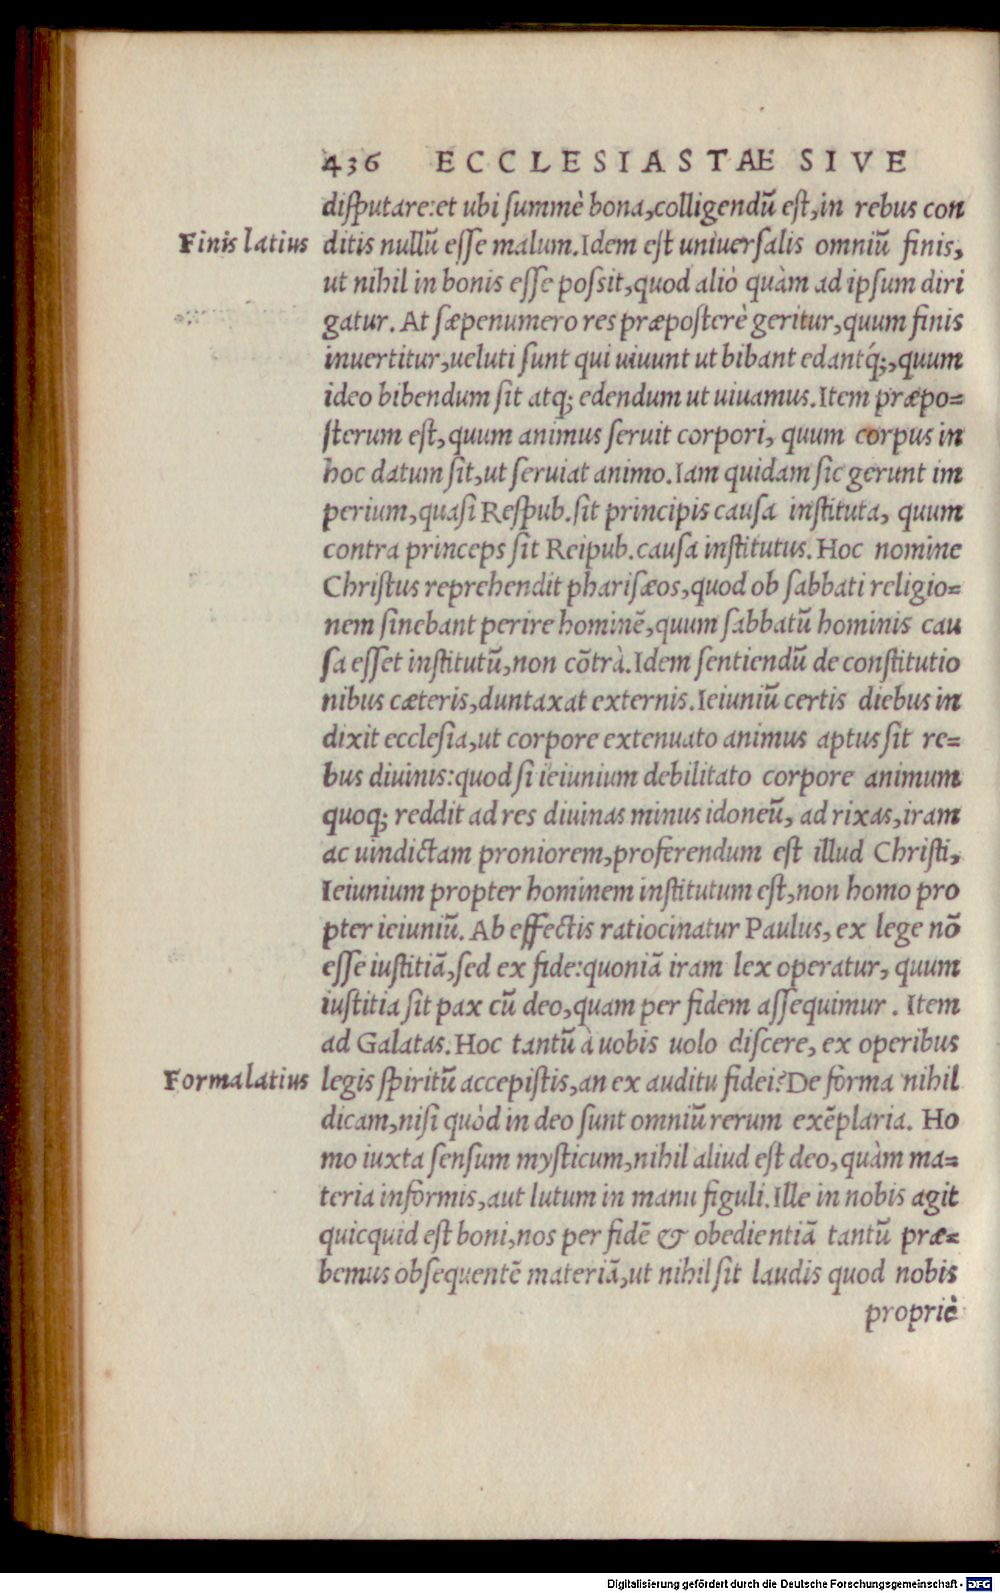 436 ECCLESIASTAE SIVE
disputare:et ubi summè bona,colligendũ est,in rebus con
Finis latius
ditis nullũ esse malum.Idem est uniuersalis omniũ finis,
ut nihil in bonis esse possit,quod aliò quàm ad ipsum diri
gatur. At sæpenumero res præposterè geritur,quum finis
inuertitur,ueluti sunt qui uiuunt ut bibant edantq́;,quum
ideo bibendum sit atq; edendum ut uiuamus.Item præpo=
sterum est,quum animus seruit corpori, quum corpus in
hoc datum sit,ut seruiat animo.Iam quidam sic gerunt im
perium,quasi Respub.sit principis causa instituta, quum
contra princeps sit Reipub.causa institutus.Hoc nomine
Christus reprehendit pharisæos,quod ob sabbati religio=
nem sinebant perire hominẽ,quum sabbatũ hominis cau
sa esset institutũ,non cõtrà.Idem sentiendũ de constitutio
nibus cæteris,duntaxat externis.Ieiuniũ certis diebus in
dixit ecclesia,ut corpore extenuato animus aptus sit re=
bus diuinis:quod si ieiunium debilitato corpore animum
quoq; reddit ad res diuinas minus idoneũ, ad rixas,iram
ac uindictam proniorem,proferendum est illud Christi,
Ieiunium propter hominem institutum est,non homo pro
pter ieiuniũ. Ab effectis ratiocinatur Paulus, ex lege nõ
esse iustitiã,sed ex fide:quoniã iram lex operatur, quum
iustitia sit pax cũ deo,quam per fidem assequimur . Item
ad Galatas.Hoc tantũ à uobis uolo discere, ex operibus
Forma latius
legis spiritũ accepistis,an ex auditu fidei?De forma nihil
dicam,nisi quòd in deo sunt omniũ rerum exẽplaria. Ho
mo iuxta sensum mysticum,nihil aliud est deo,quàm ma=
teria informis,aut lutum in manu figuli.Ille in nobis agit
quicquid est boni,nos per fidẽ & obedientiã tantũ præ=
bemus obsequentẽ materiã,ut nihil sit laudis quod nobis
propriè
Digitalisierung gefördert durch die Deutsche Forschungsgemeinschaft - DFG